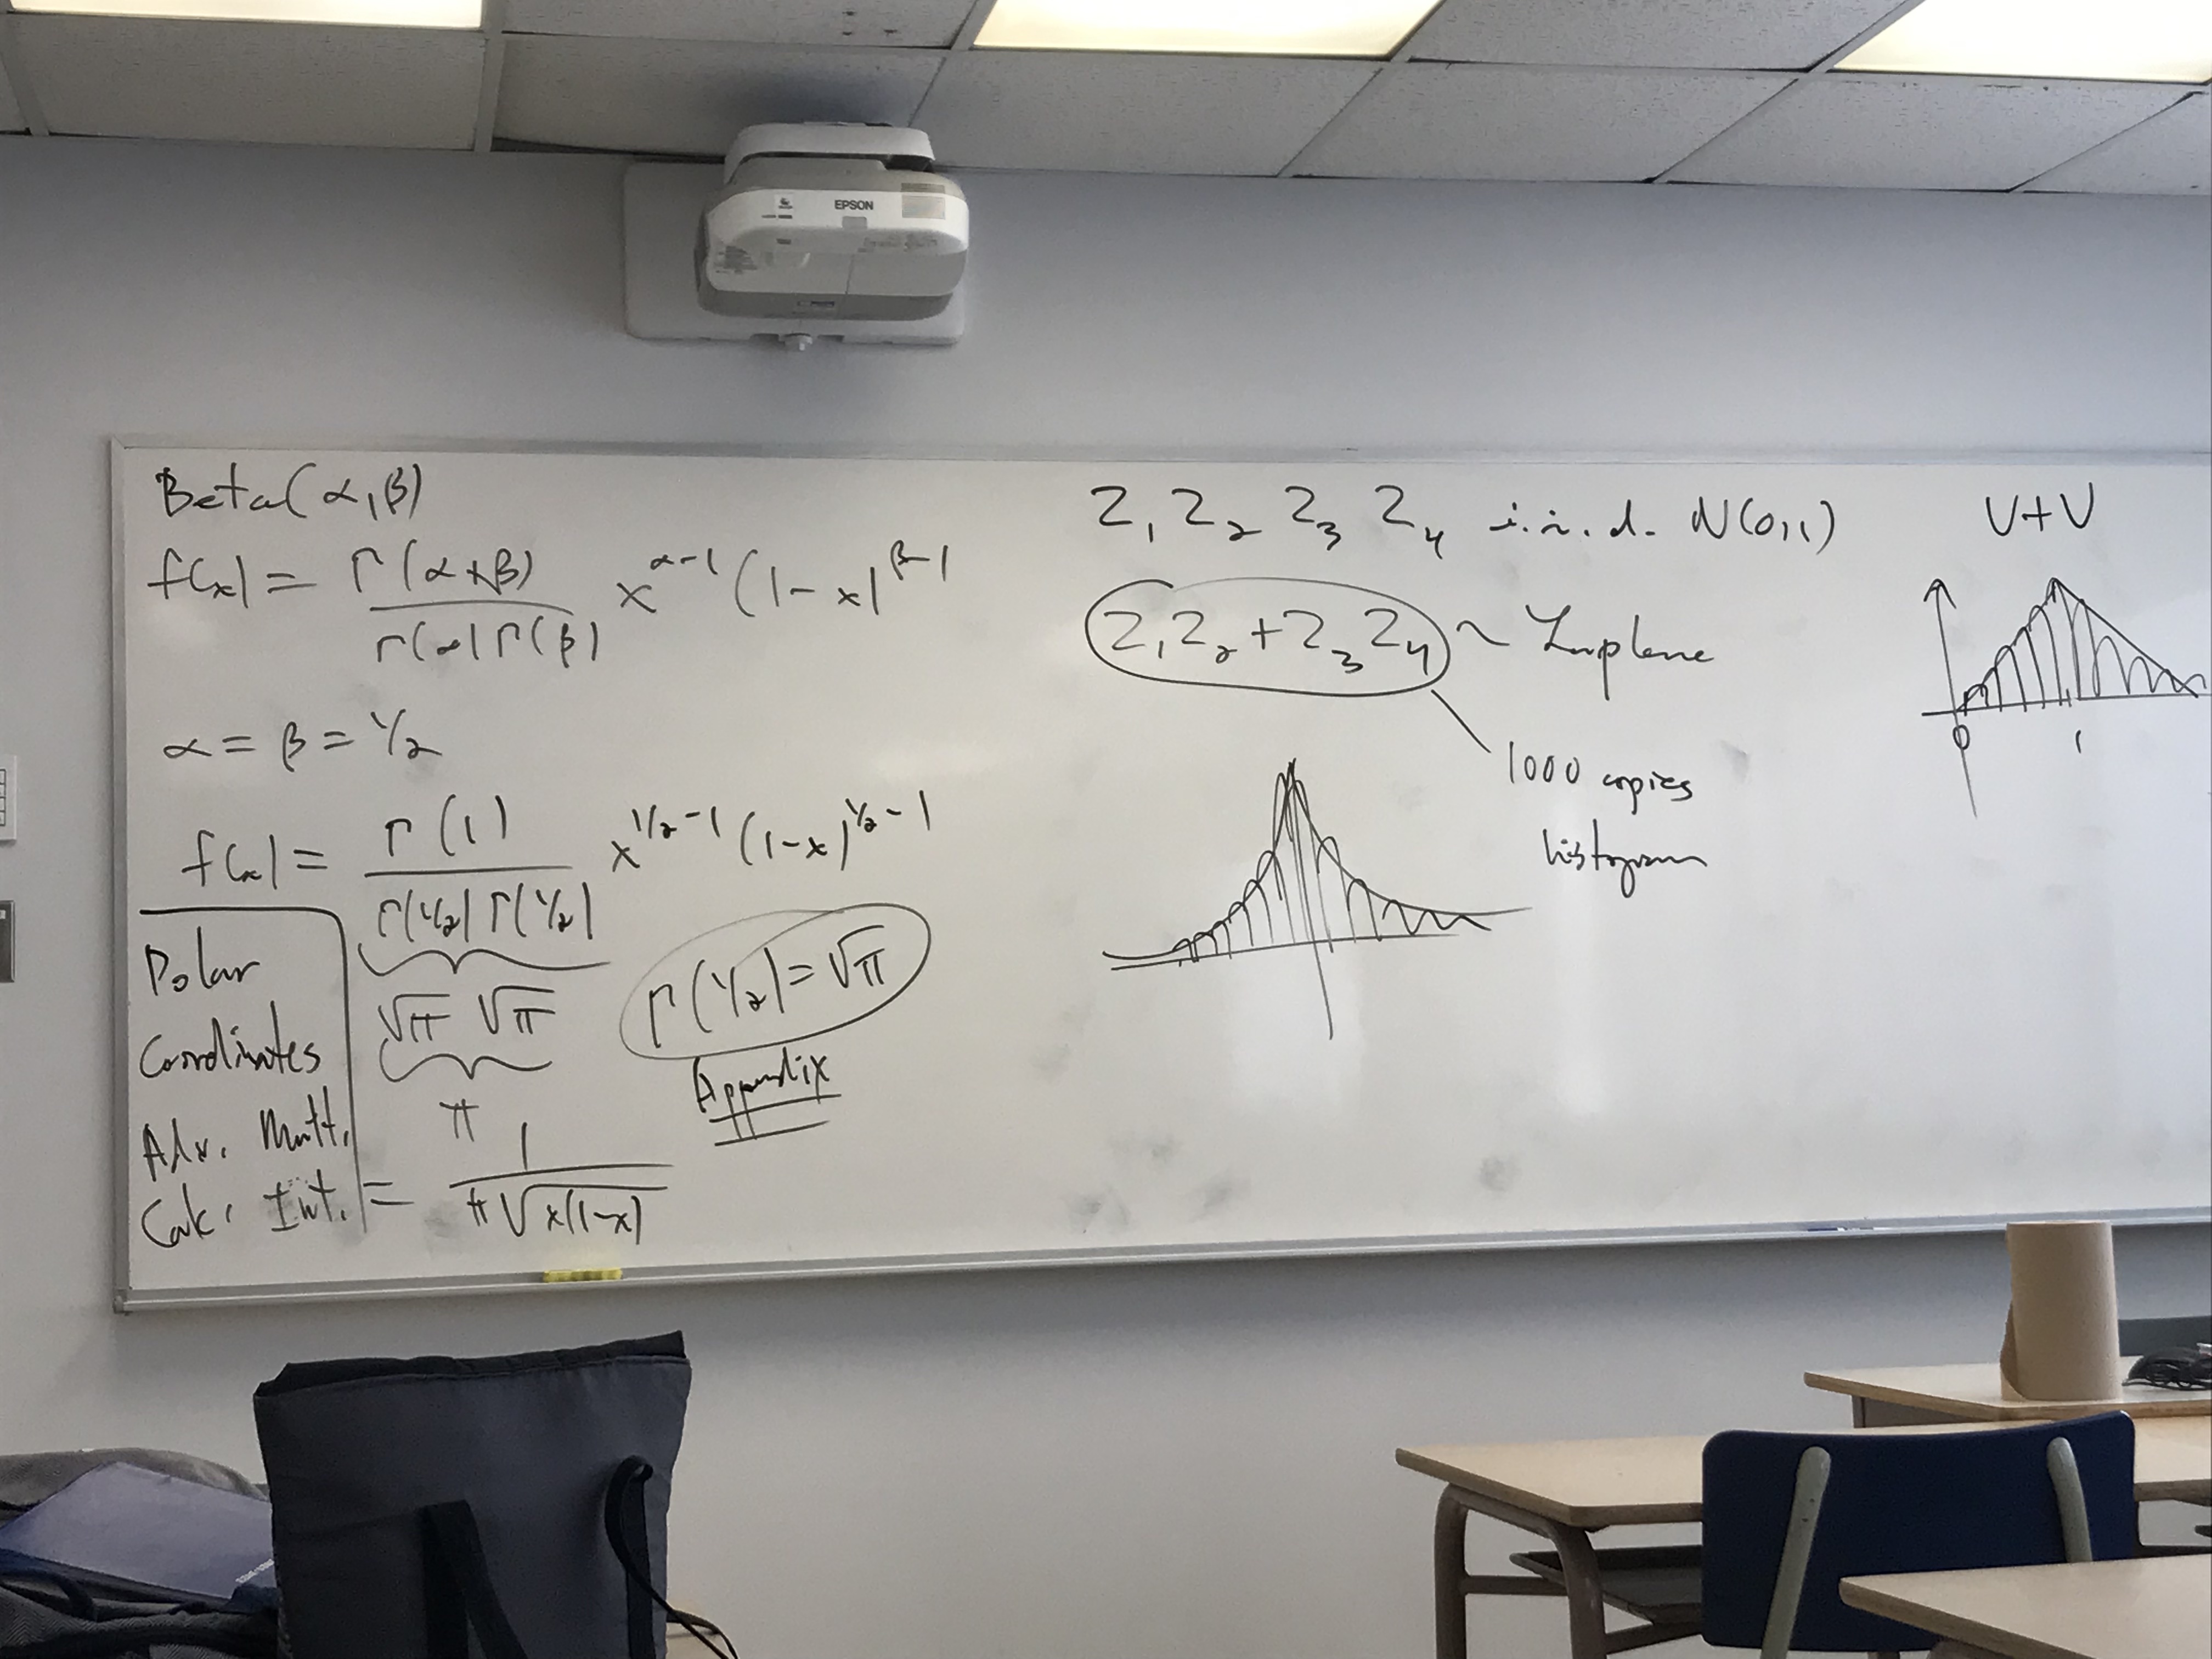 EPSON
Beta(α,β)
f(x) = Γ(α+β) / Γ(α)Γ(β) x^(α-1) (1-x)^(β-1)
α = β = 1/2
f(x) = Γ(1) / Γ(1/2) Γ(1/2) x^(1/2-1) (1-x)^(1/2-1)
√π √π
π
= 1 / π√x(1-x)
Γ(1/2) = √π
Appendix
Polar
Coordinates
Adv. Mult.
Calc. Int.
Z₁ Z₂ Z₃ Z₄ i.i.d. N(0,1)
Z₁Z₂ + Z₃Z₄ ~ Laplace
1000 copies
histogram
U+V
0 1